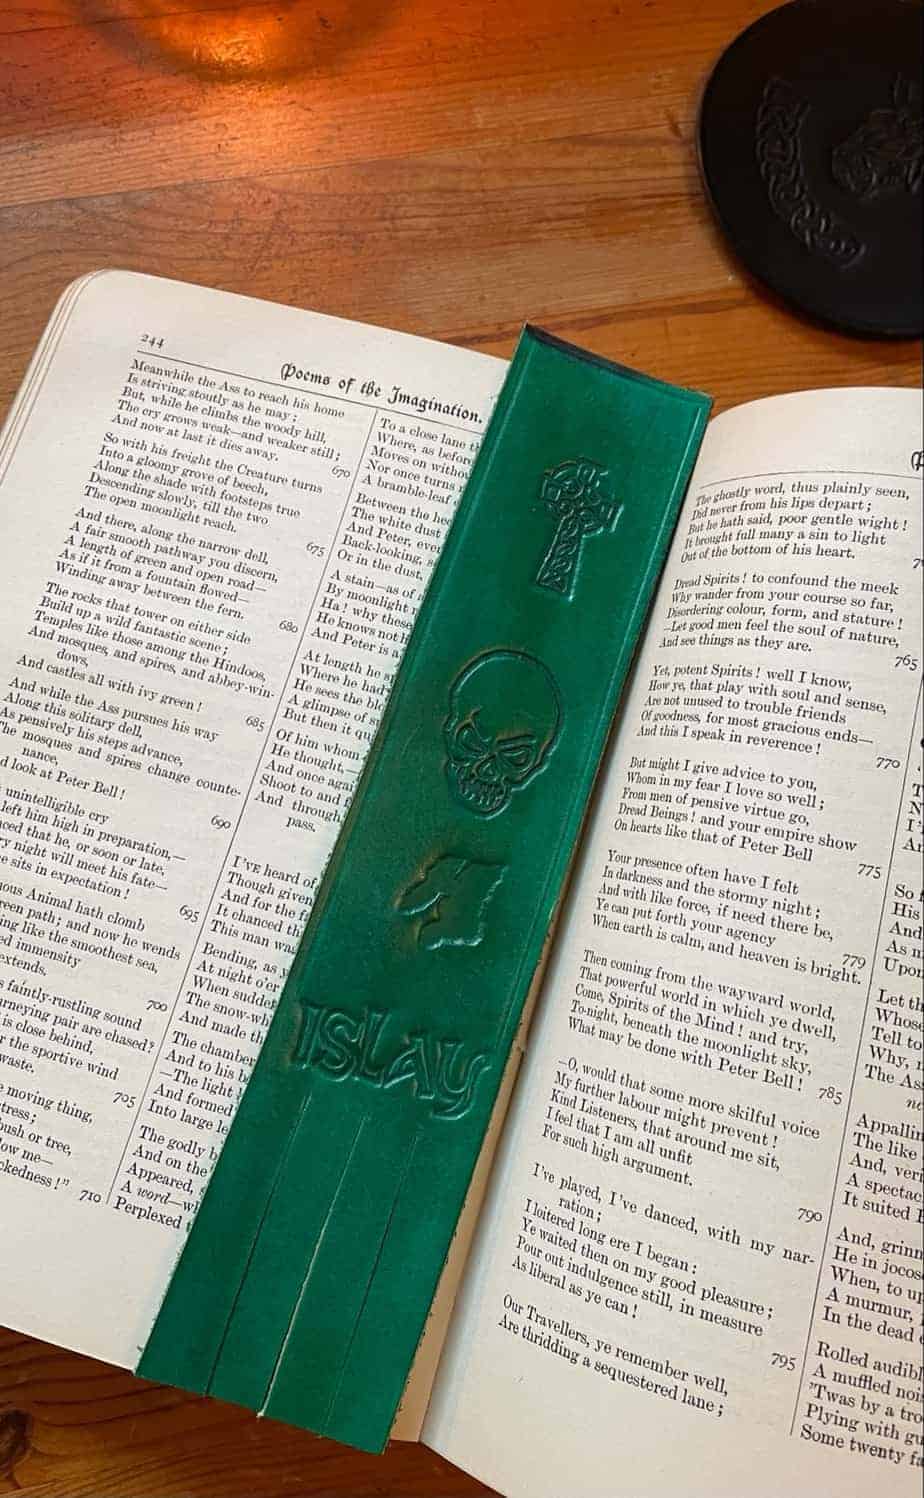 244
Poems of the Imagination.
Meanwhile the Ass to reach his home
Is striving stoutly as he may;
But, while he climbs the woody hill,
The cry grows weak—and weaker still;
And now at last it dies away.
So with his freight the Creature turns 670
Into a gloomy grove of beech,
Along the shade with footsteps true
Descending slowly, till the two
The open moonlight reach.
And there, along the narrow dell, 675
A fair smooth pathway you discern,
A length of green and open road—
As if it from a fountain flowed—
Winding away between the fern.
The rocks that tower on either side 680
Build up a wild fantastic scene;
Temples like those among the Hindoos,
And mosques, and spires, and abbey-win-
dows,
And castles all with ivy green!
And while the Ass pursues his way 685
Along this solitary dell,
As pensively his steps advance,
The mosques and spires change counte-
nance,
look at Peter Bell!
unintelligible cry 690
left him high in preparation,—
that he, or soon or late,
night will meet his fate—
sits in expectation!
Animal hath clomb 695
path; and now he wends
like the smoothest sea,
immensity
faintly-rustling sound 700
pair are chased?
is close behind,
the sportive wind
moving thing, 705
bush or tree,
me—
710
To a close lane
Where, as
Moves on
Nor once turns
A bramble-leaf
Between the
The white dust
And Peter,
Back-looking,
Or in the dust,
A stain—as of
By moonlight
Ha! why these
He knows not
And Peter is
At length he
Where he had
He sees the
A glimpse of
But then it
Of him whom
He thought,—
And once
Shoot to and
And through
pass.
I'VE heard of
Though given
And for the
It chanced
This man was
Bending, as
At night o'er
When
The
And made
The chamber
And to his
—The light
And formed
Into large
The godly
And on the
Appeared,
A word—
Perplexed
ISLAY
The ghostly word, thus plainly seen,
Did never from his lips depart;
But he hath said, poor gentle wight!
It brought full many a sin to light
Out of the bottom of his heart.
Dread Spirits! to confound the meek
Why wander from your course so far,
Disordering colour, form, and stature!
—Let good men feel the soul of nature,
And see things as they are. 765
Yet, potent Spirits! well I know,
How ye, that play with soul and sense,
Are not unused to trouble friends
Of goodness, for most gracious ends—
And this I speak in reverence! 770
But might I give advice to you,
Whom in my fear I love so well;
From men of pensive virtue go,
Dread Beings! and your empire show
On hearts like that of Peter Bell 775
Your presence often have I felt
In darkness and the stormy night;
And with like force, if need there be,
Ye can put forth your agency 779
When earth is calm, and heaven is bright.
Then coming from the wayward world,
That powerful world in which ye dwell,
Come, Spirits of the Mind! and try,
To-night, beneath the moonlight sky,
What may be done with Peter Bell! 785
—O, would that some more skilful voice
My further labour might prevent!
Kind Listeners, that around me sit,
I feel that I am all unfit
For such high argument. 790
I've played, I've danced, with my nar-
ration;
I loitered long ere I began:
Ye waited then on my good pleasure;
Pour out indulgence still, in measure
As liberal as ye can! 795
Our Travellers, ye remember well,
Are thridding a sequestered lane;
So
His
And
As
Upon
Let
Whose
Tell to
Why,
The
Appalling
The like
And,
A
It suited
And,
He in
When, to
A murmur,
In the dead
Rolled
A muffled
'Twas by a
Plying with
Some twenty